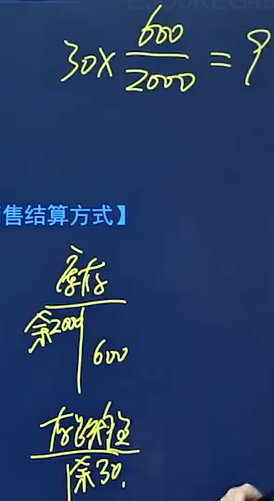 30×600/2000=9
售结算方式】
库存
余2000
600
存货跌价
余30.